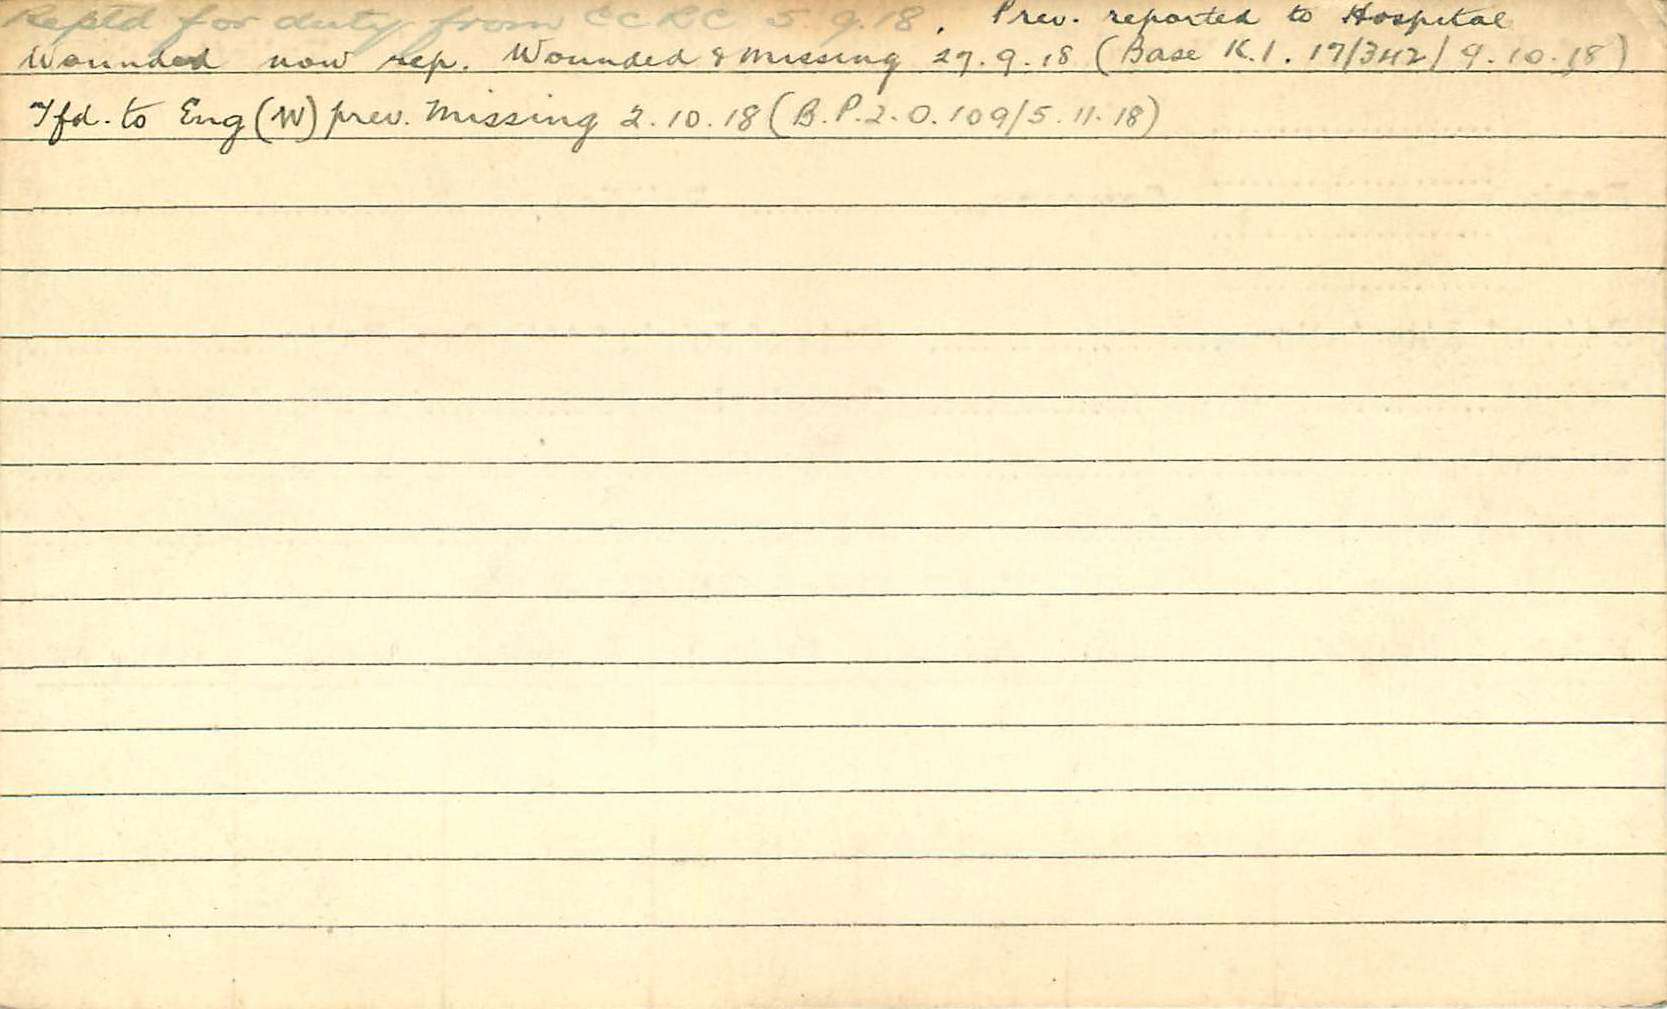 Reptd for duty from CCRC 5 9.18. Prev. reported to Hospital
Wounded now rep. Wounded & Missing 27.9.18 (Base K.1. 17/342/9.10.18)
Tfd. to Eng (W) prev. Missing 2.10.18 (B.P.2.0.109/5.11.18)